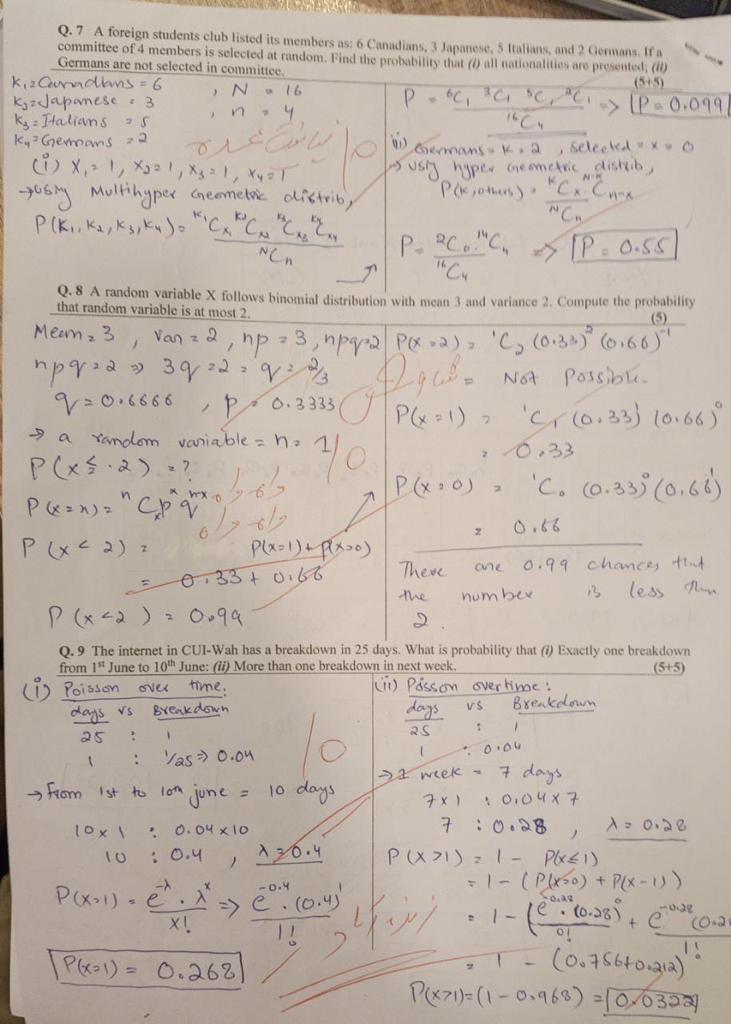 Q. 7 A foreign students club listed its members as: 6 Canadians, 3 Japanese, 5 Italians, and 2 Germans. If a
committee of 4 members is selected at random. Find the probability that (i) all nationalities are presented; (ii)
Germans are not selected in committee. (5+5)
K₁=Canadians = 6 , N = 16
K₂=Japanese = 3 , n = 4
K₃=Italians = 5
K₄=Germans = 2
(i) X₁=1, X₂=1, X₃=1, X₄=1
→ Using Multihyper Geometric distrib,
P(K₁,K₂,K₃,K₄) = ᴷ¹Cx₁ ᴷ²Cx₂ ᴷ³Cx₃ ᴷ⁴Cx₄ / ᴺCn
P = ⁶C₁ ³C₁ ⁵C₁ ²C₁ / ¹⁶C₄ => P = 0.099
10
ii) Germans = K = 2 , Selected = x = 0
→ Using hyper Geometric distrib,
P(K, others) = ᴷCx · ᴺ⁻ᴷCn-x / ᴺCn
P = ²C₀ · ¹⁴C₄ / ¹⁶C₄ => P = 0.55
Q. 8 A random variable X follows binomial distribution with mean 3 and variance 2. Compute the probability
that random variable is at most 2. (5)
Mean = 3 , Van = 2 , np = 3 , npq = 2
npq = 2 => 3q = 2 = q = 2/3
q = 0.6666 , p = 0.3333
→ a random variable = n = 1
P(x ≤ 2) = ?
P(x=n) = ⁿCx pˣ qⁿ⁻ˣ
P(x < 2) = P(x=1) + P(x=0)
= 0.33 + 0.66
P(x<2) = 0.99
10
P(x=2) = ¹C₂ (0.33)² (0.66)⁻¹
= Not Possible.
P(x=1) = ¹C₁ (0.33)¹ (0.66)⁰
= 0.33
P(x=0) = ¹C₀ (0.33)⁰ (0.66)¹
= 0.66
There are 0.99 chances that
the number is less than
2.
Q. 9 The internet in CUI-Wah has a breakdown in 25 days. What is probability that (i) Exactly one breakdown
from 1st June to 10th June: (ii) More than one breakdown in next week. (5+5)
(i) Poisson over time:
days vs Breakdown
25 : 1
1 : 1/25 => 0.04
→ From 1st to 10th june = 10 days
10 x 1 : 0.04 x 10
10 : 0.4 , λ = 0.4
P(x=1) = e^-λ · λ^x / x! => e^-0.4 · (0.4)¹ / 1!
P(x=1) = 0.268
10
(ii) Poisson overtime:
days vs Breakdown
25 : 1
1 : 0.04
→ 1 week = 7 days
7x1 : 0.04 x 7
7 : 0.28 , λ = 0.28
P(x>1) = 1 - P(x≤1)
= 1 - (P(x=0) + P(x=1))
= 1 - (e^-0.28 · (0.28)⁰ / 0! + e^-0.28 (0.2 / 1!
= 1 - (0.756+0.212)
P(x>1) = (1 - 0.968) = 0.0322